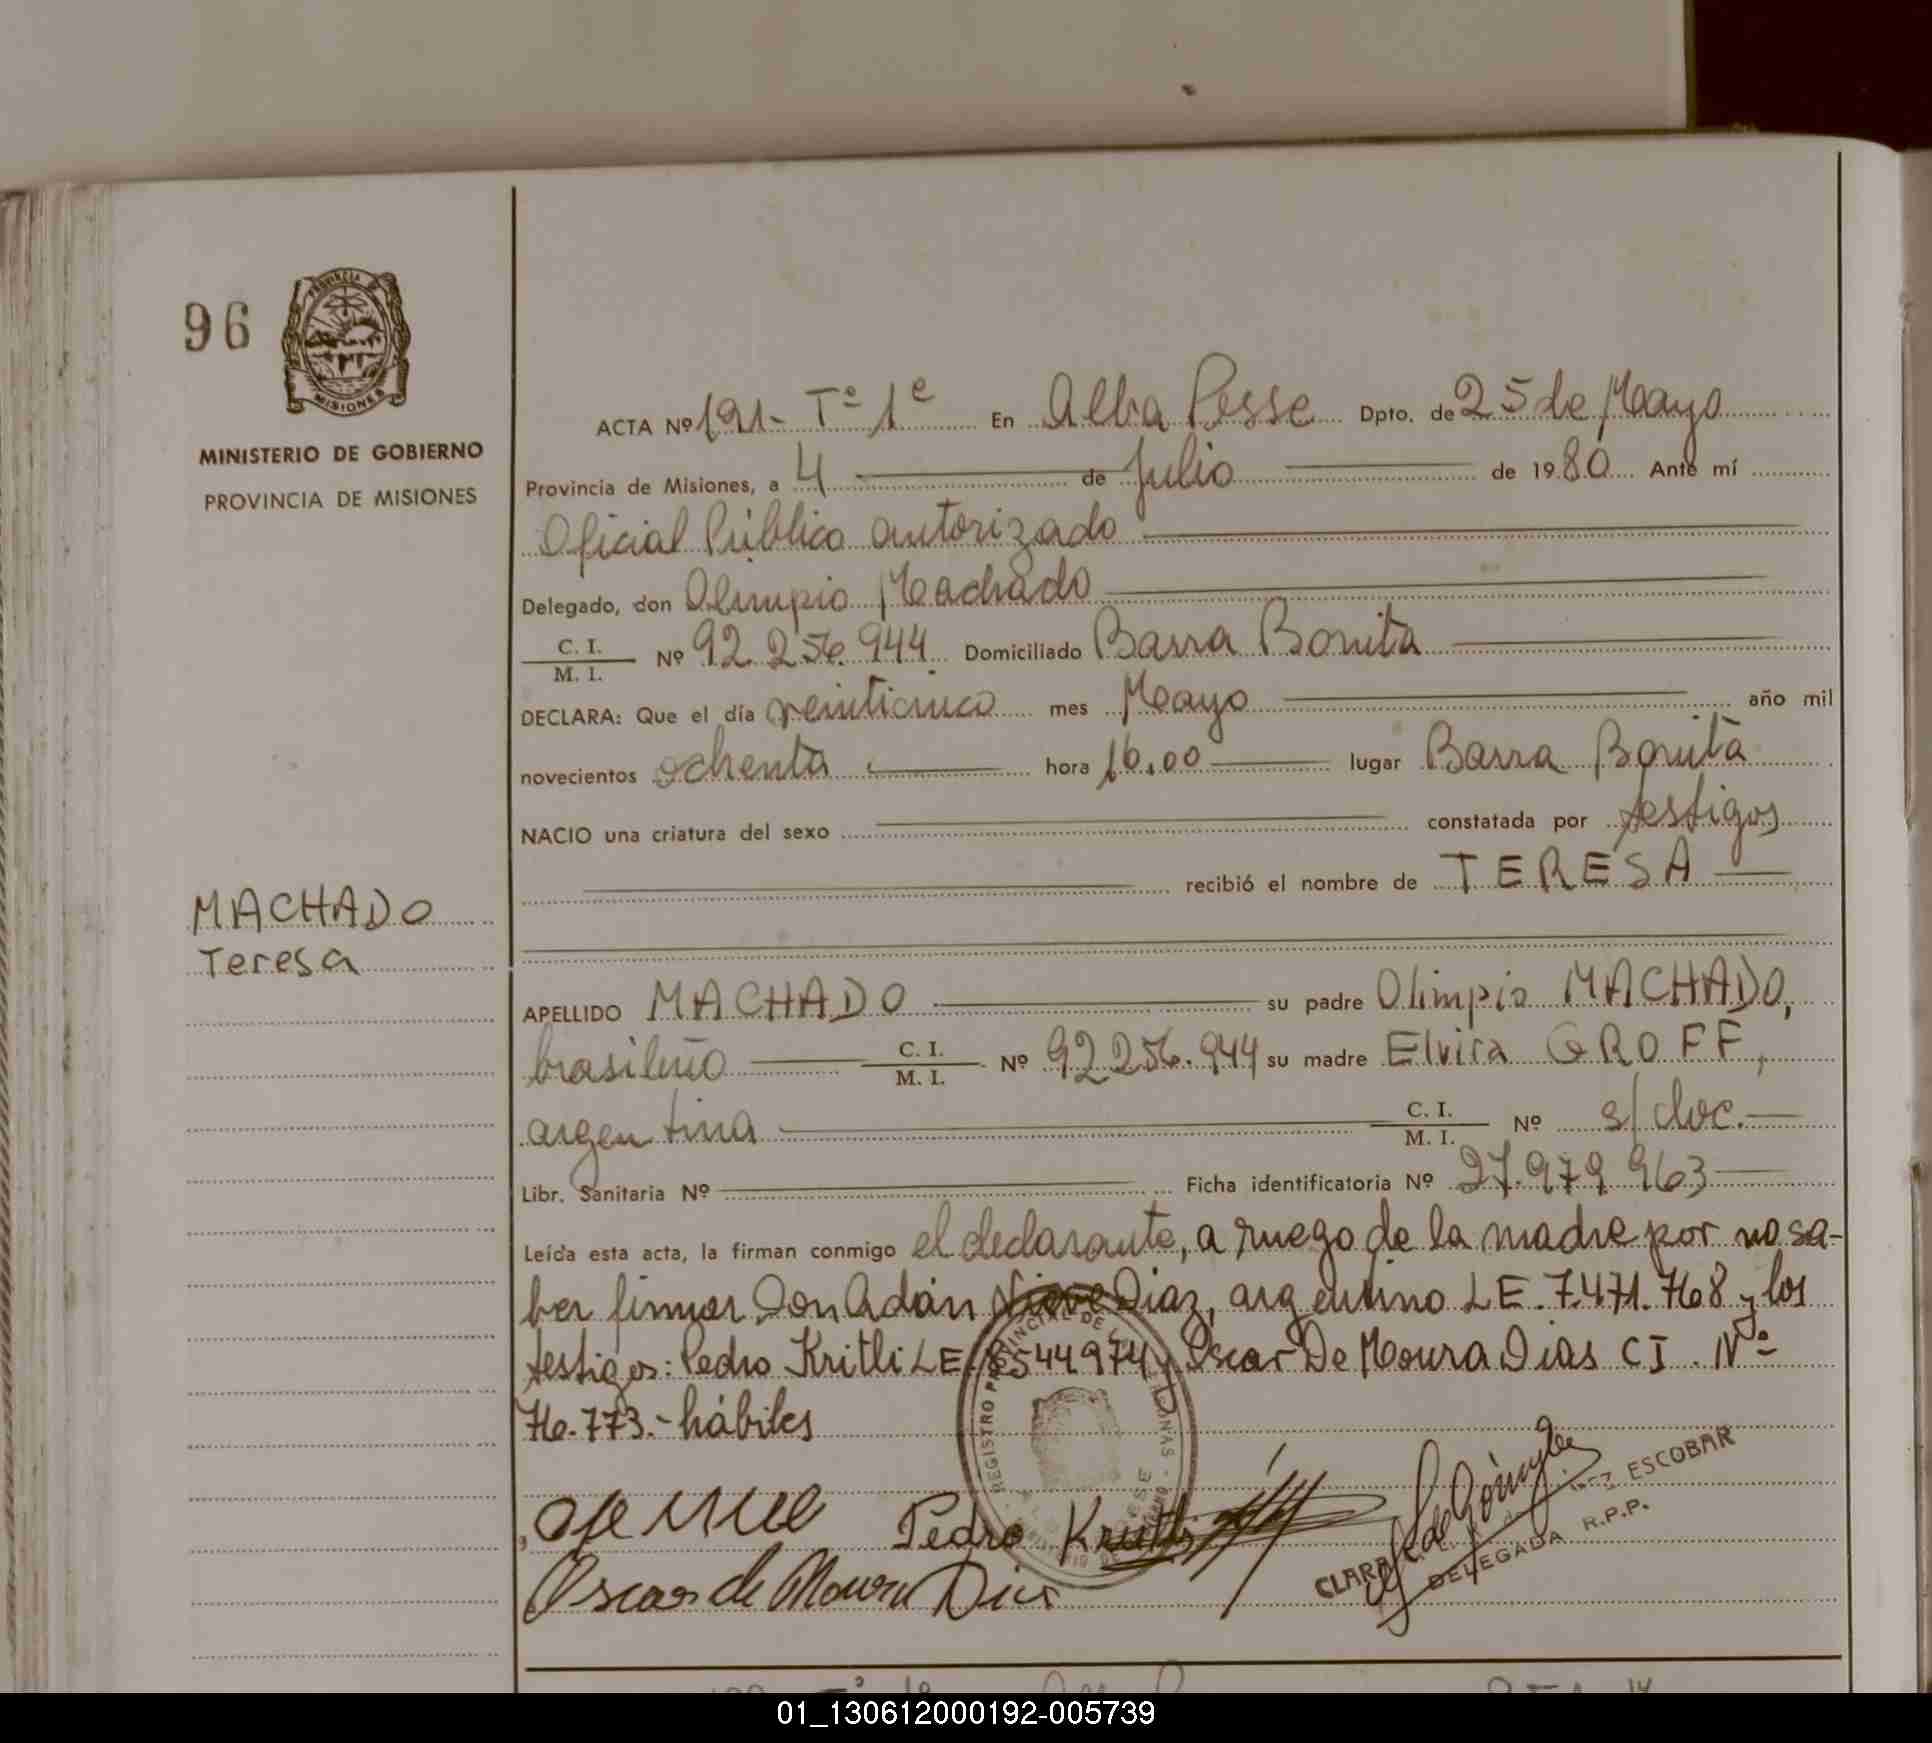 96
PROVINCIA DE
MISIONES
MINISTERIO DE GOBIERNO
PROVINCIA DE MISIONES
ACTA Nº 191- Tº 1º En Alba Posse Dpto. de 25 de Mayo
Provincia de Misiones, a 4 de Julio de 1980 Ante mí
Oficial Público autorizado
Delegado, don Olimpio Machado
C. I.
M. I. Nº 92.256.944 Domiciliado Barra Bonita
DECLARA: Que el día veinticinco mes Mayo año mil
novecientos ochenta hora 16,00 lugar Barra Bonita
NACIO una criatura del sexo constatada por testigos
recibió el nombre de TERESA
MACHADO
Teresa
APELLIDO MACHADO su padre Olimpio MACHADO,
brasileño C. I. M. I. Nº 92256.944 su madre Elvira GROFF,
argentina C. I. M. I. Nº s/doc.
Libr. Sanitaria Nº Ficha identificatoria Nº 27.979.963
Leída esta acta, la firman conmigo el declarante, a ruego de la madre por no sa-
ber firmar Don Adán Diaz, argentino LE. 7.471.768 y los
testigos: Pedro Kritli LE. 8544974 y Oscar De Moura Dias CI. Nº
76.773.- hábiles
Pedro
Oscar de Moura Dias
CLARA ESCOBAR
DELEGADA R.P.P.
01_130612000192-005739